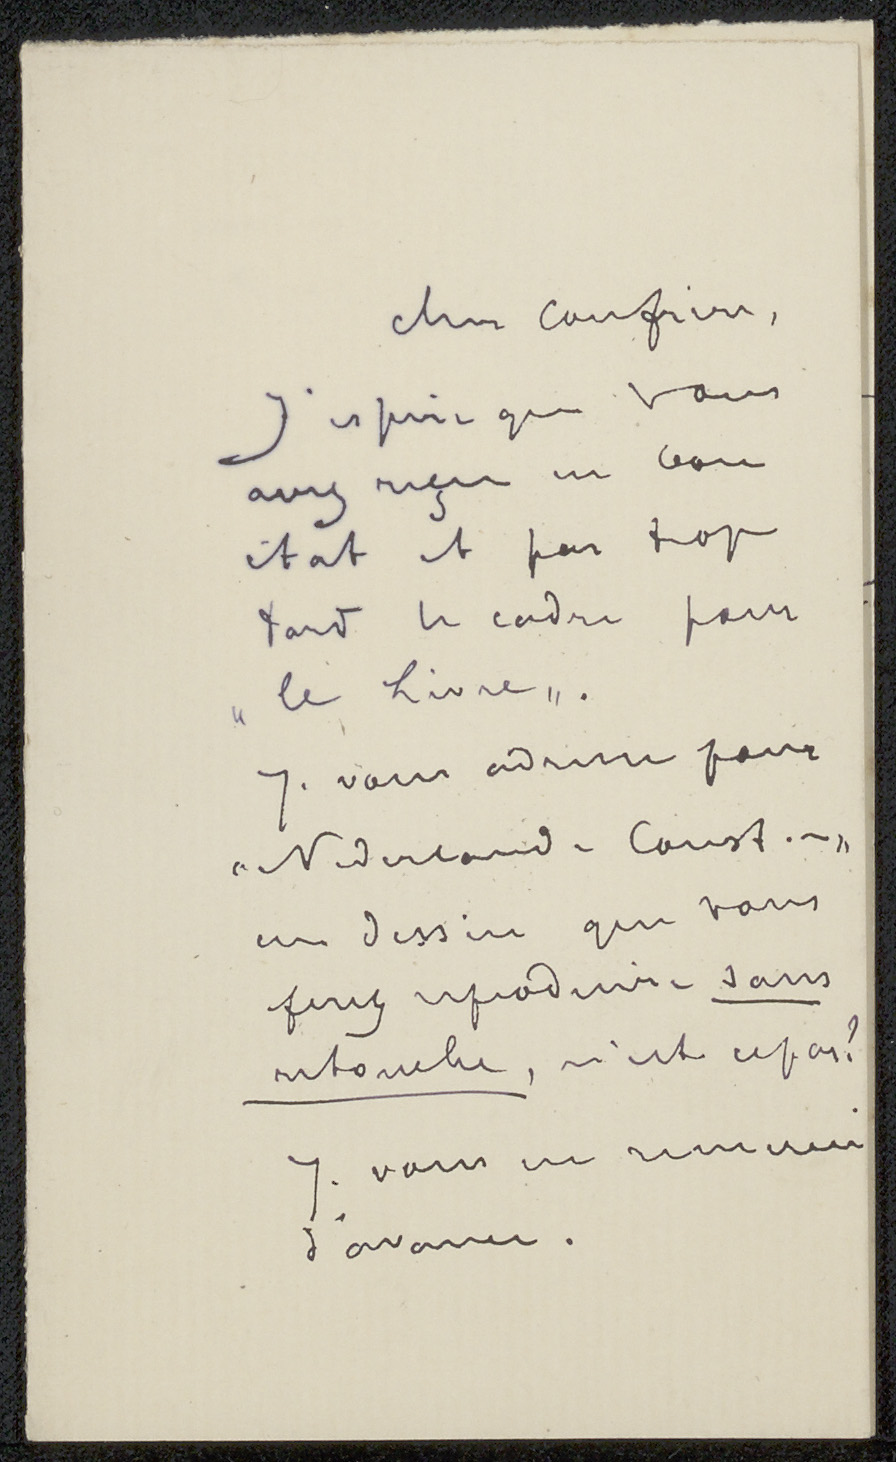 cher confrère,
J'espère que vous
avez reçu en bon
état et pas trop
tard le cadre pour
„le Livre„.
Je vous adresse pour
„Nederlande Const...„
un dessin que vous
ferez reproduire sans
retouche, n'est ce pas?
Je vous en remercie
d'avance.